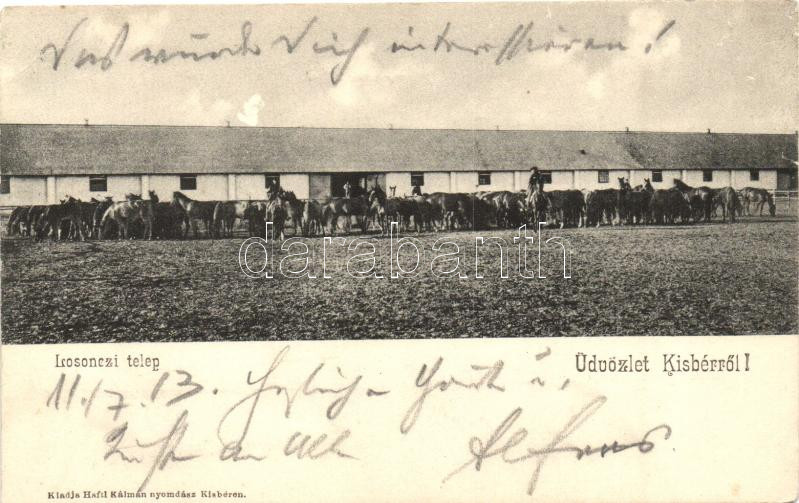 Das würde Dich interessieren!
darabanth
Losonczi telep
Üdvözlet Kisbérről!
11./7. 13.
an Alle Alfons
Kiadja Haftl Kálmán nyomdász Kisbéren.